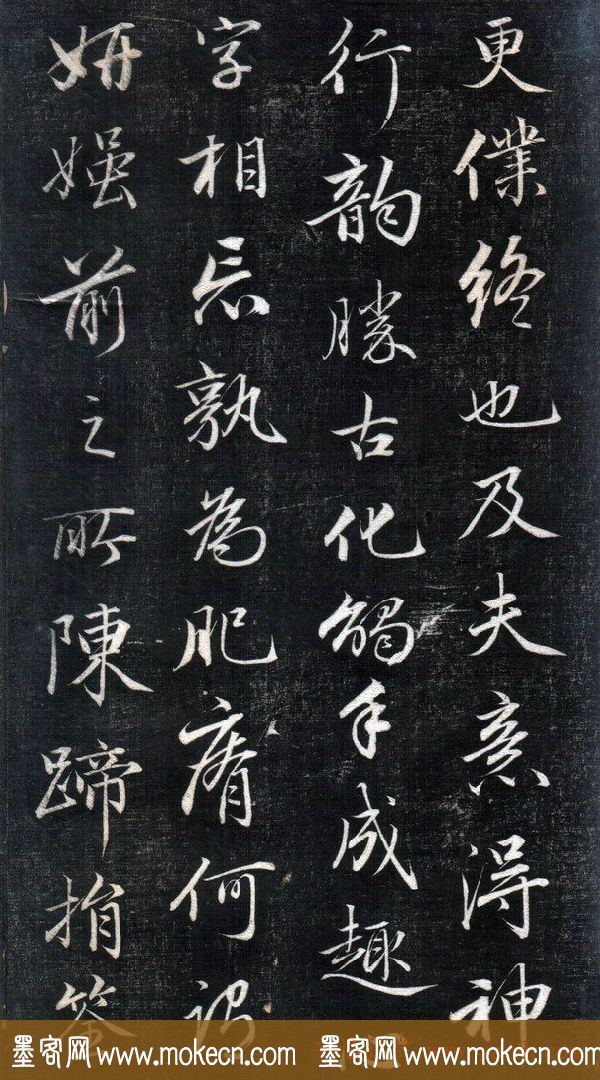 更僕終也及夫意得神
行韵勝古化觸手成趣
字相忘孰為肥瘠何
妍媸前之所陳蹄捐筌
墨客网 www.mokecn.com 墨客网 www.mokecn.com